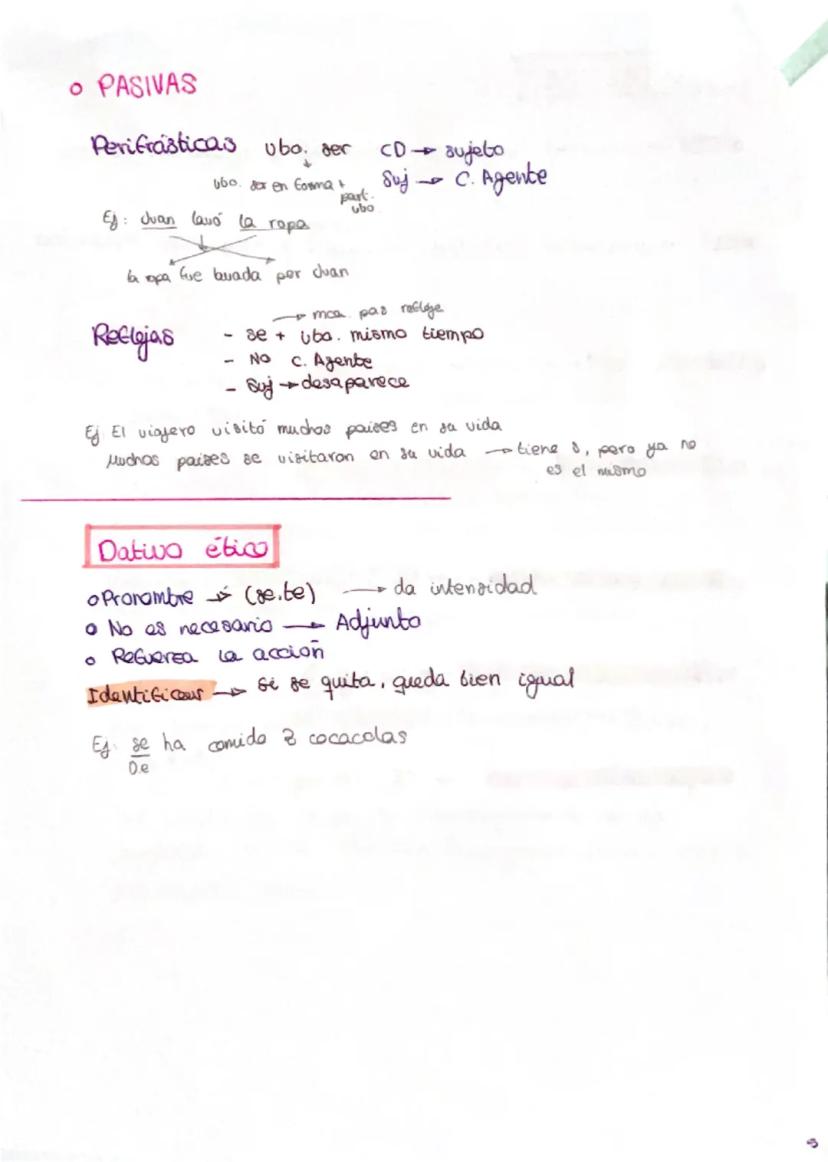 o PASIVAS
Perifrásticas vbo. ser CD → sujeto
vbo. ser en forma + part. vbo Suj → C. Agente
Ej: Juan lavó la ropa
la ropa fue lavada por Juan
→ mca. pas refleja
Reflejas - se + vbo. mismo tiempo
- No C. Agente
- Suj → desaparece
Ej El viajero visitó muchos paises en su vida
Muchos paises se visitaron en su vida → tiene S, pero ya no
es el mismo
Dativo ético
o Pronombre → (se, te) → da intensidad
o No es necesario → Adjunto
o Refuerza la acción
Identificar → Si se quita, queda bien igual
Ej. se ha comido 2 cocacolas
D.e